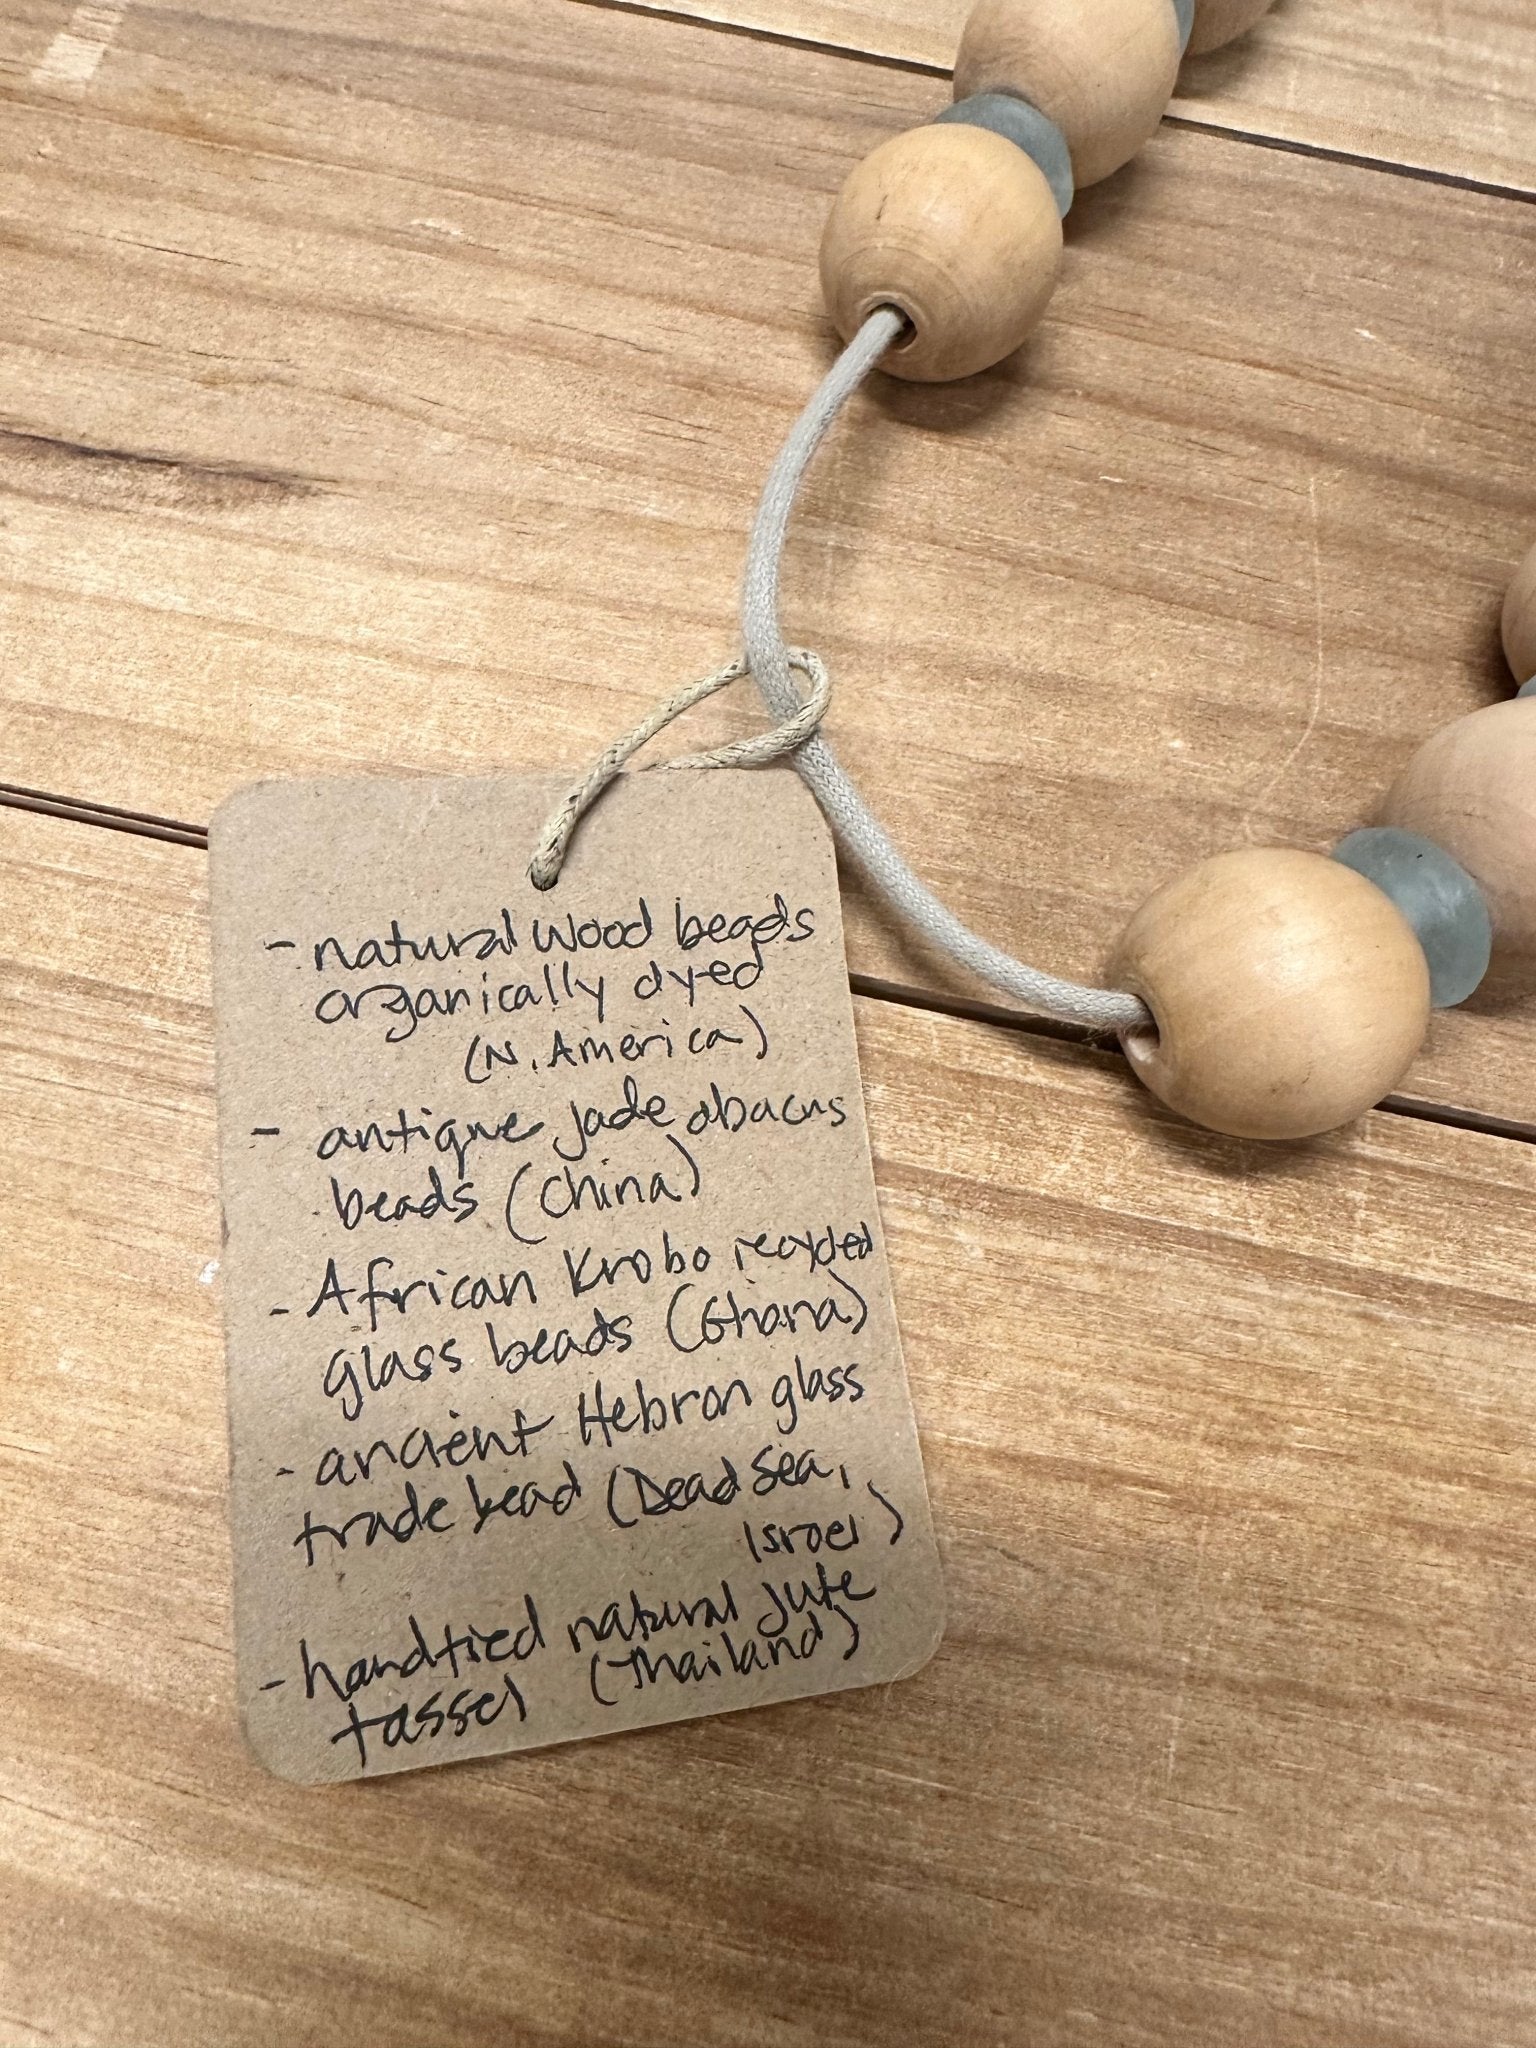 - natural wood beads
organically dyed
(N. America)
- antique jade abacus
beads (China)
- African Krobo recycled
glass beads (Ghana)
- ancient Hebron glass
trade bead (Dead Sea,
Israel)
- handtied natural jute
tassel (Thailand)